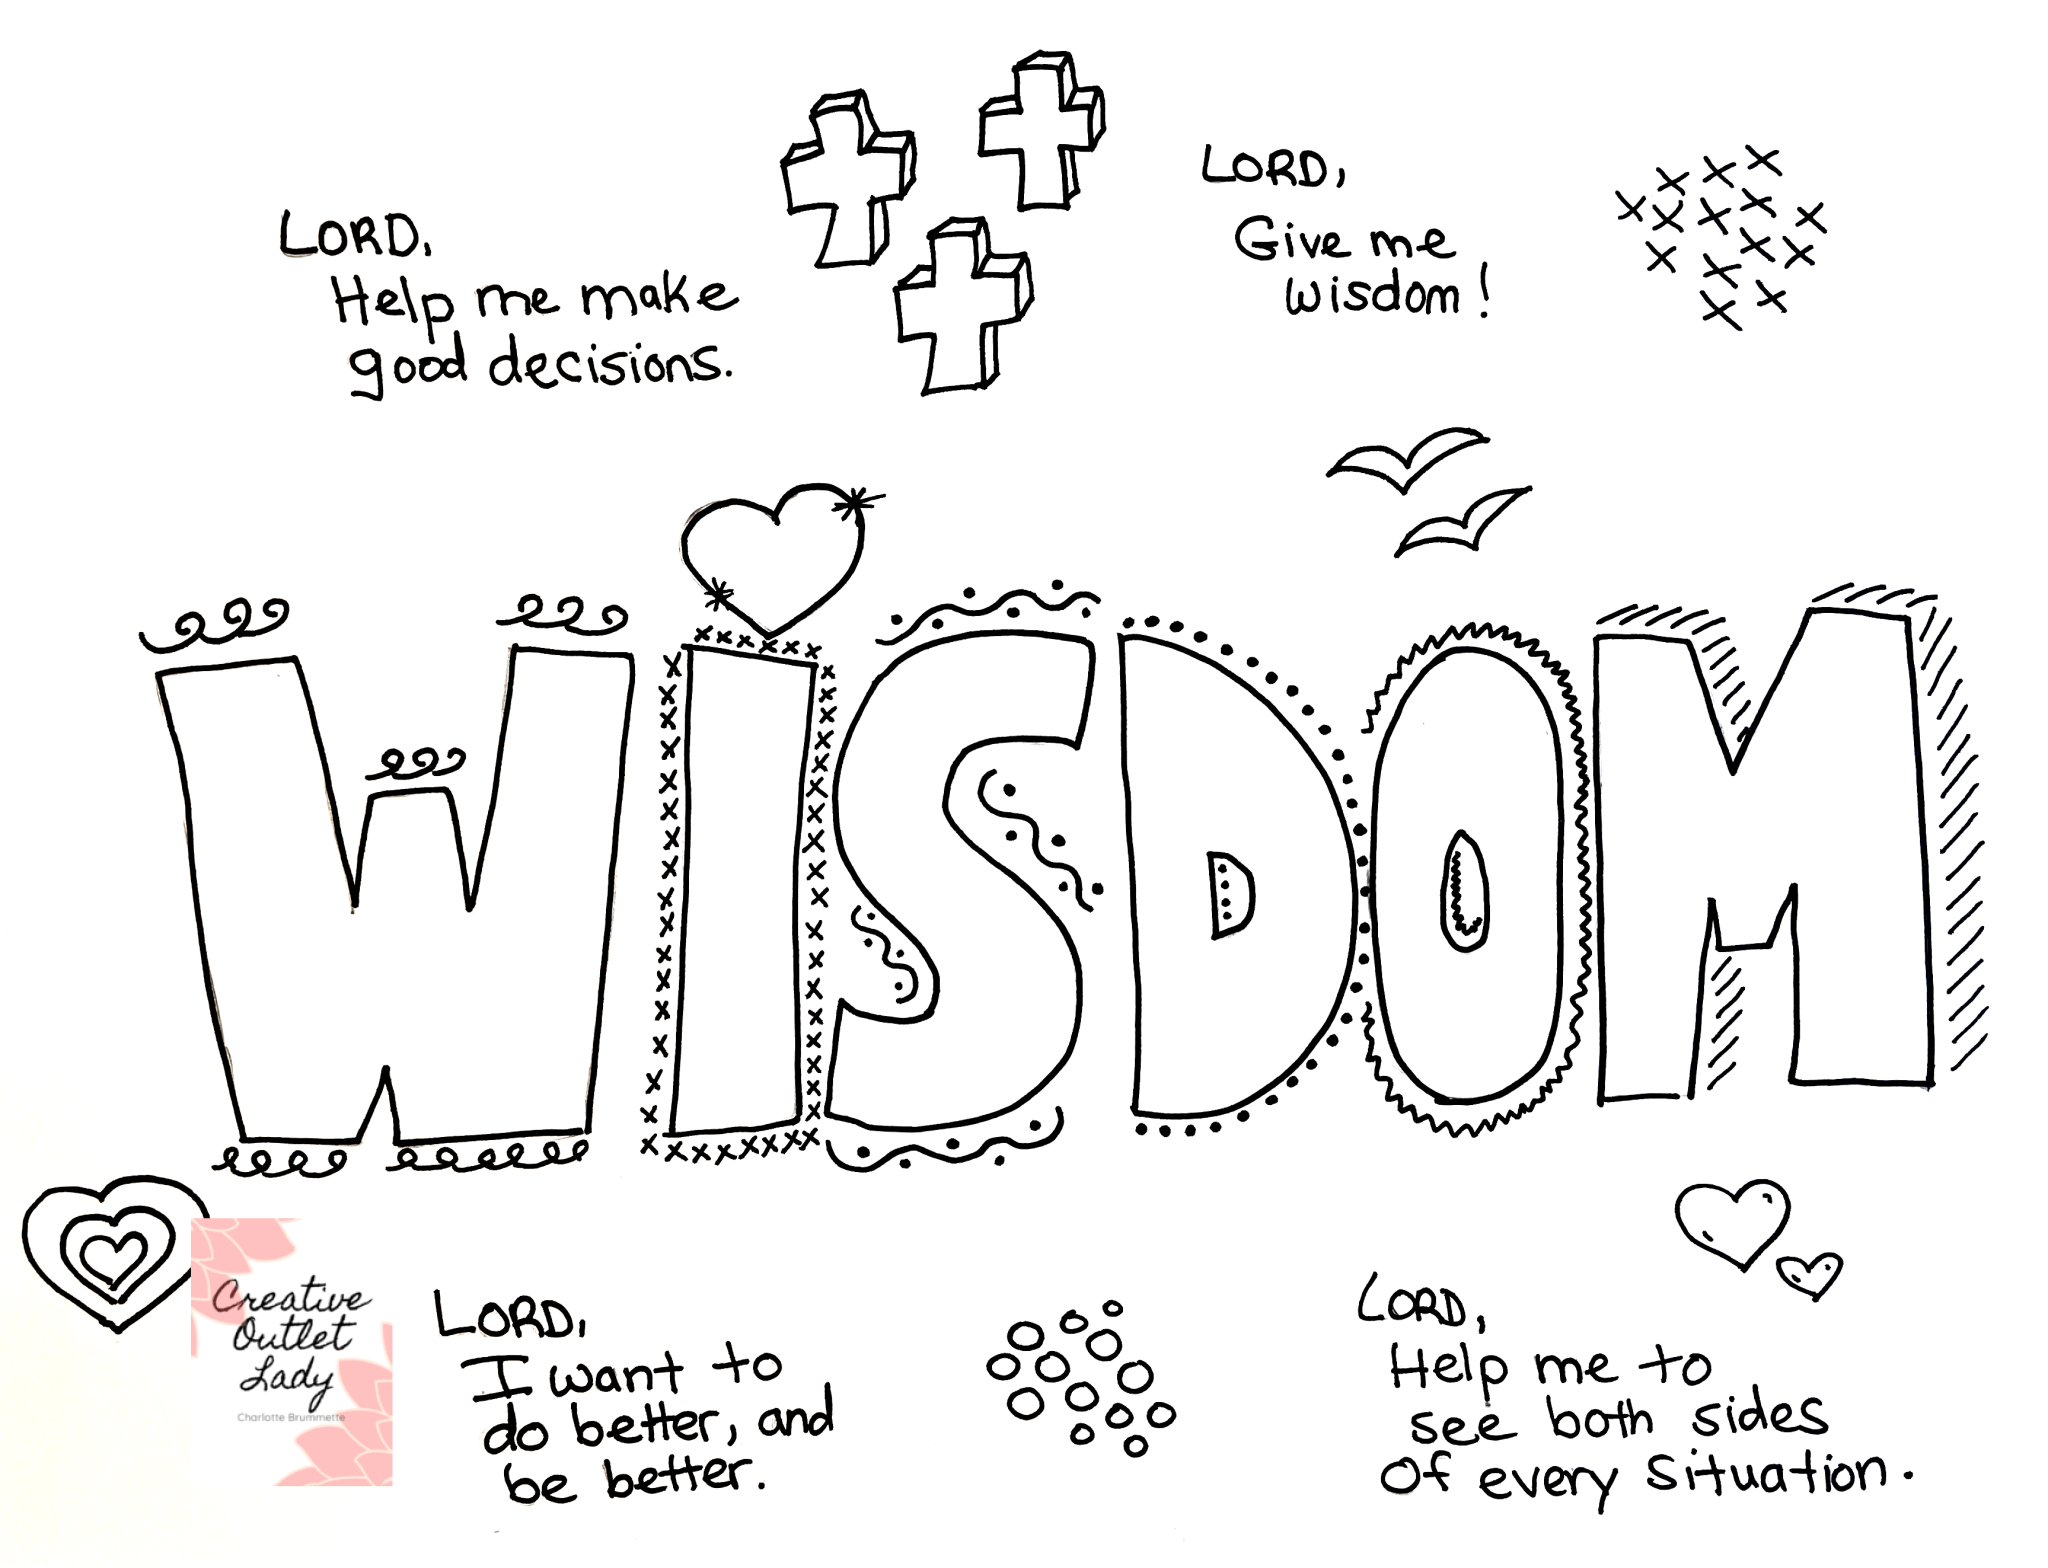 LORD,
Help me make
good decisions.
LORD,
Give me
wisdom!
WiSDOM
Creative
Outlet
Lady
Charlotte Brummette
LORD,
I want to
do better, and
be better.
LORD,
Help me to
see both sides
Of every situation.